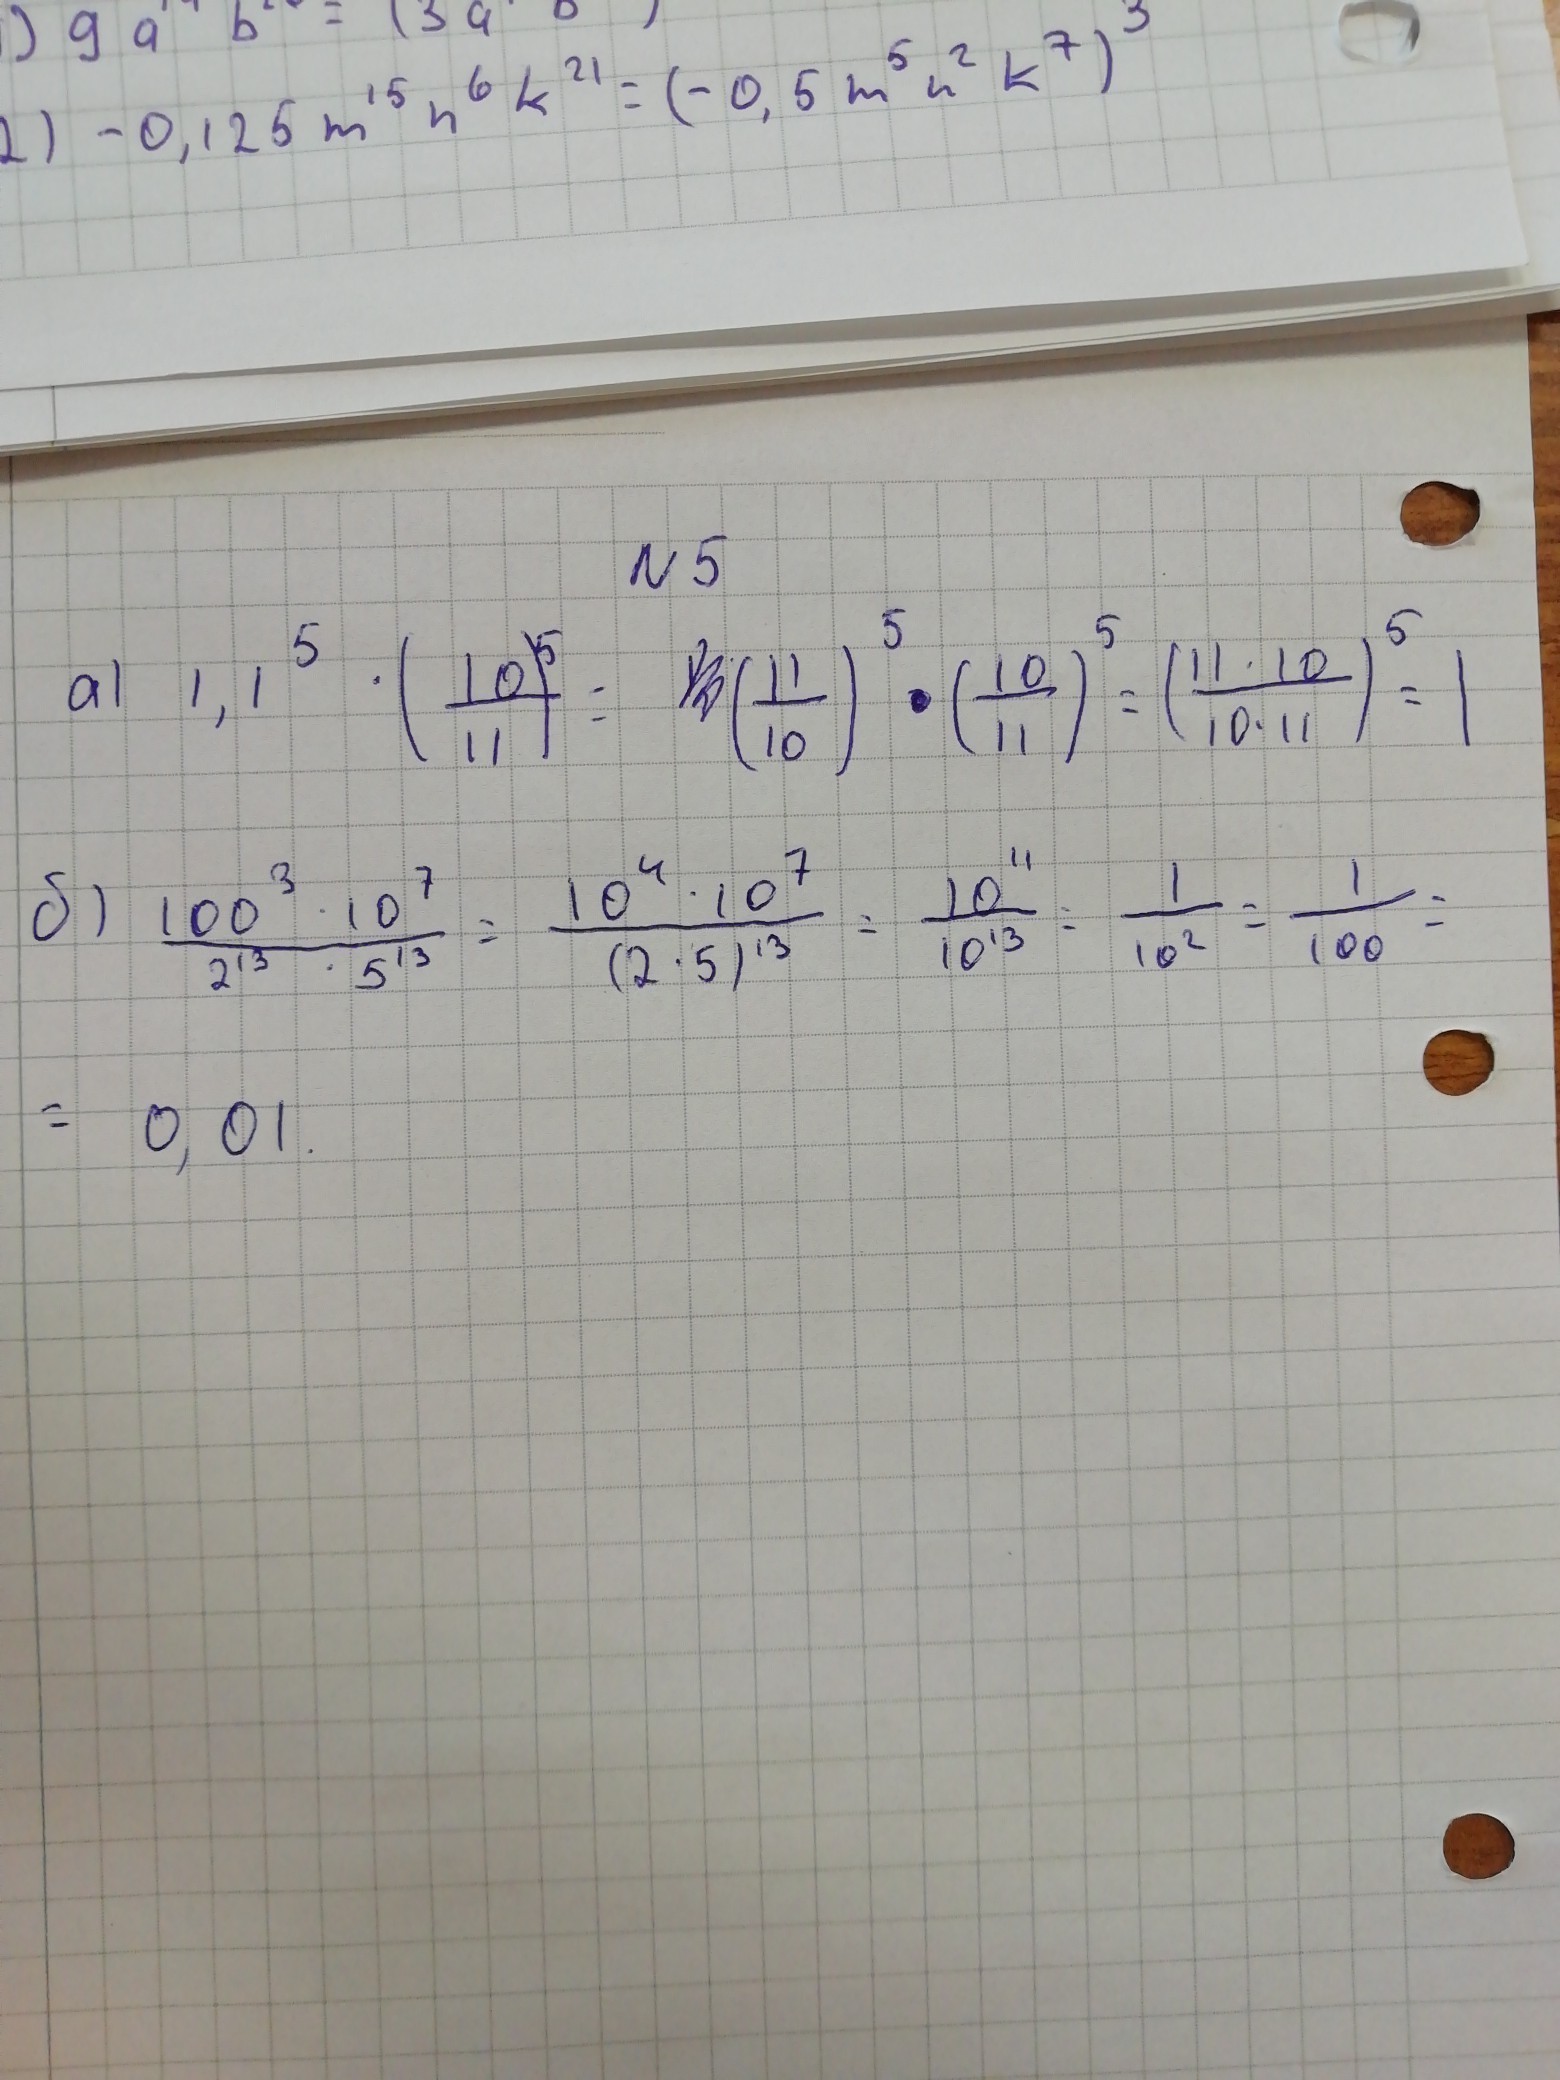 1) 9 a b = (3 a b )
2) -0,125 m¹⁵ n⁶ k²¹ = (-0,5 m⁵ n² k⁷)³
N 5
а) 1,1⁵ · (10/11)⁵ = (11/10)⁵ · (10/11)⁵ = (11·10/10·11)⁵ = 1
б) 100³ · 10⁷/2¹³ · 5¹³ = 10⁴ · 10⁷/(2·5)¹³ = 10¹¹/10¹³ = 1/10² = 1/100 =
= 0,01.